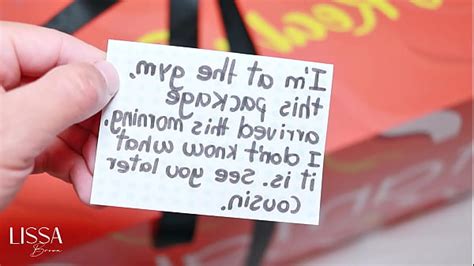 I'm at the gym,
this package
arrived this morning.
I don't know what
it is. See you later
Cousin.
LISSA
Brown